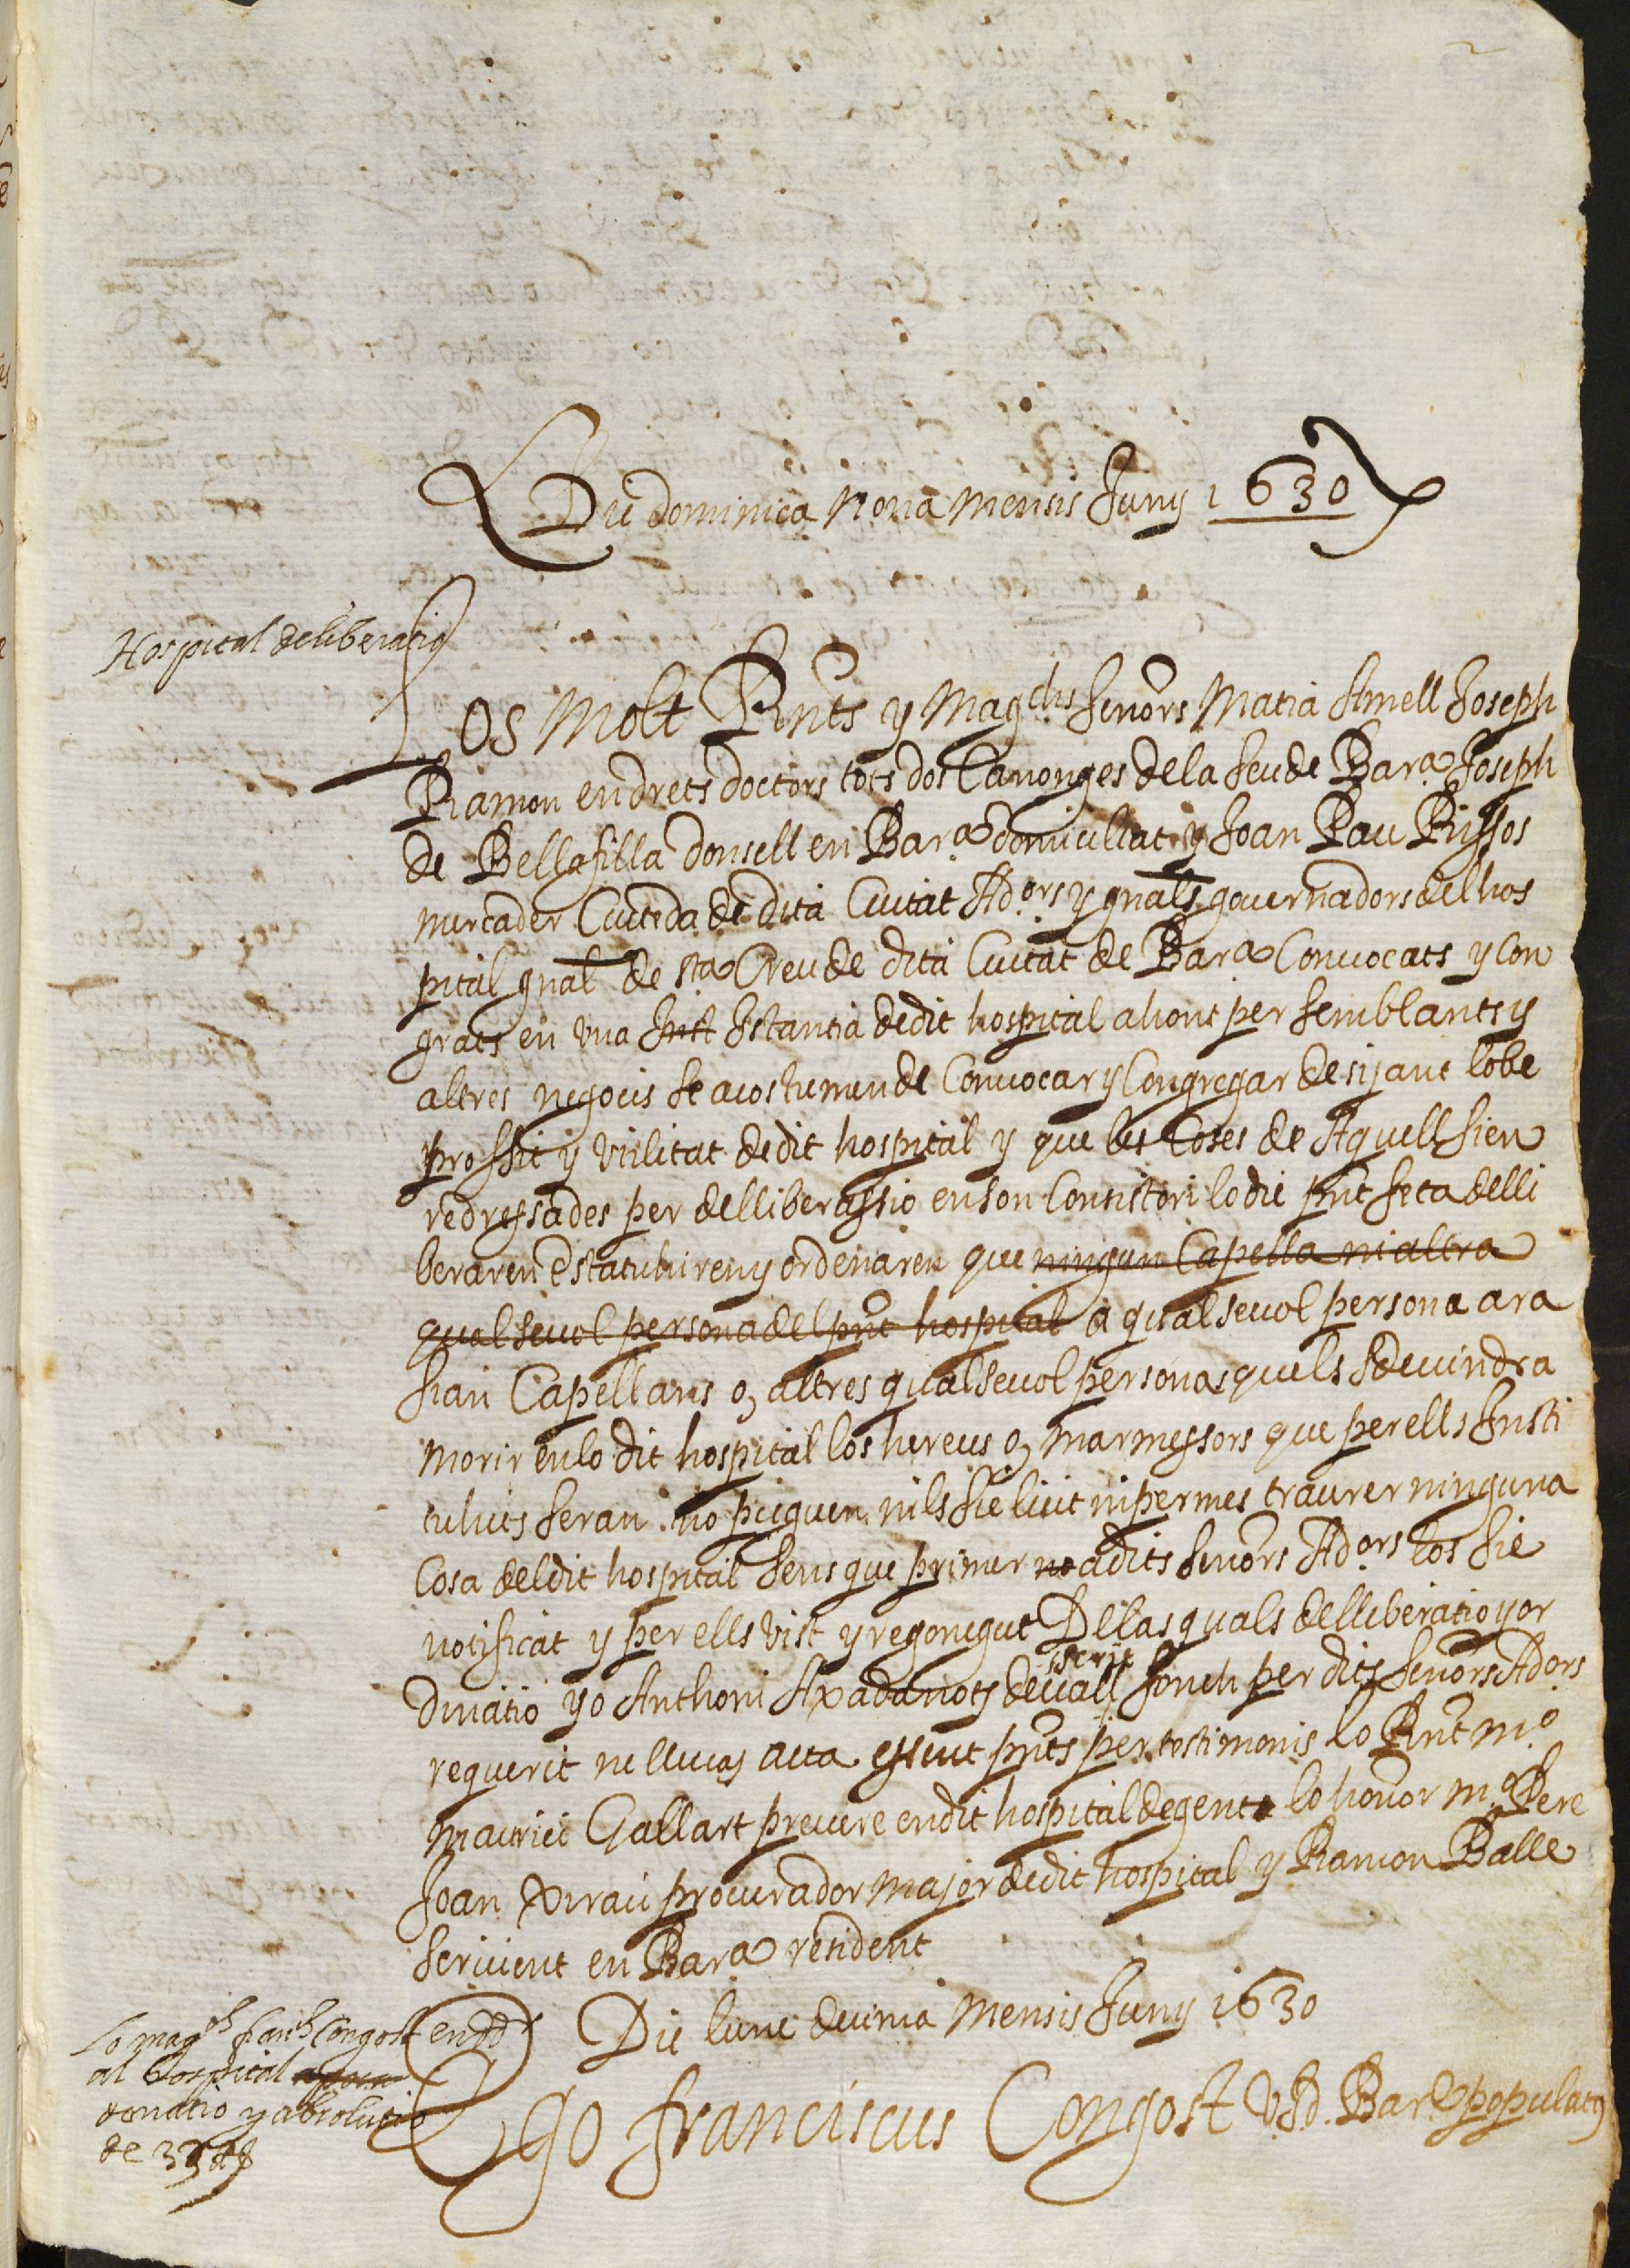 Die dominica nona mensis Juny 1630
Hospital deliberatio
Los Molt Rnts y Magchs senors Matia Amell Joseph
Ramon en drets doctors tots dos Canonges de la seu de Bara Joseph
de Bellafilla donsell en Bara domicillat y Joan Pau Rissos
mercader Ciuteda de dita Ciutat Adors y gnals gouernadors del hos
pital gnal de sta Creu de dita Ciutat de Bara Conuocats y Con
grats en vna Inst Istantia de dit hospital ahont per semblants y
altres negocis se acostumen de Conuocar y Congregar desijant lo be
proffit y vtilitat de dit hospital y que les Coses de Aquell sien
redressades per delliberassio en son Consistori lo die pnt feta delli
beraren Estatuhiren y ordenaren que ningun Capella ni altra
qualseuol persona del pnt hospital a qualseuol persona ara
sian Capellans o, altres qualseuol personas quels sdeuindra
morir en lo dit hospital los hereus o, marmessors que per ells Insti
tuhits seran no puguen nils sie licit ni permes traurer ninguna
Cosa del dit hospital sens que primer no a dits senors Adors los sie
notificat y per ells vist y regonegut De las quals delliberatio y or
dinatio yo Anthoni Axada noty deuall scrit fonch per dits senors Adors
requerit ne lleuas acta essent pnts per testimonis lo Rnt mo
maurici Gallart preuere en dit hospital degent lo honor mo Pere
Joan Xirau procurador major de dit hospital y Ramon Balle
scriuent en Bara resident
Die lune decima mensis Juny 1630
Lo magch franch Congost en dd
al Hospital apoca
donatio y absolutio
de 33
Ego franciscus Congost VJd. Bare populatus